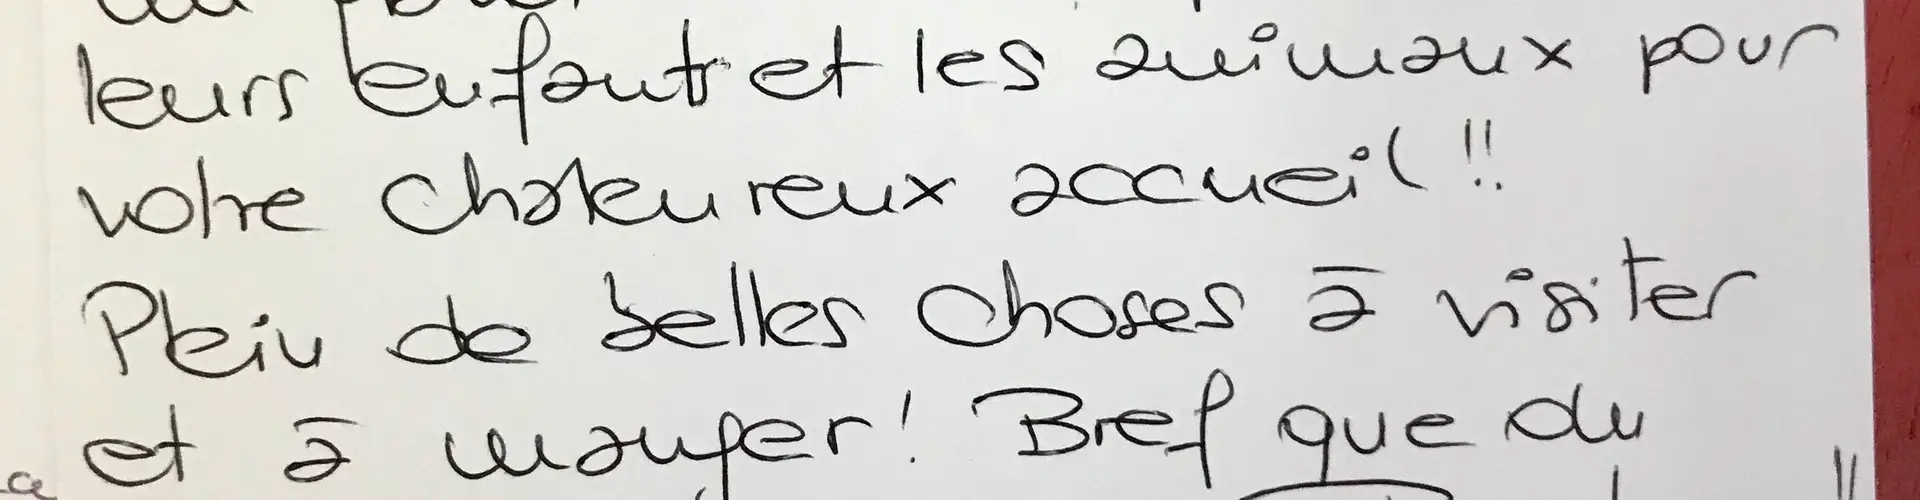 leurs enfants et les animaux pour
votre chaleureux accueil !!
Plein de belles choses à visiter
et à manger ! Bref que du